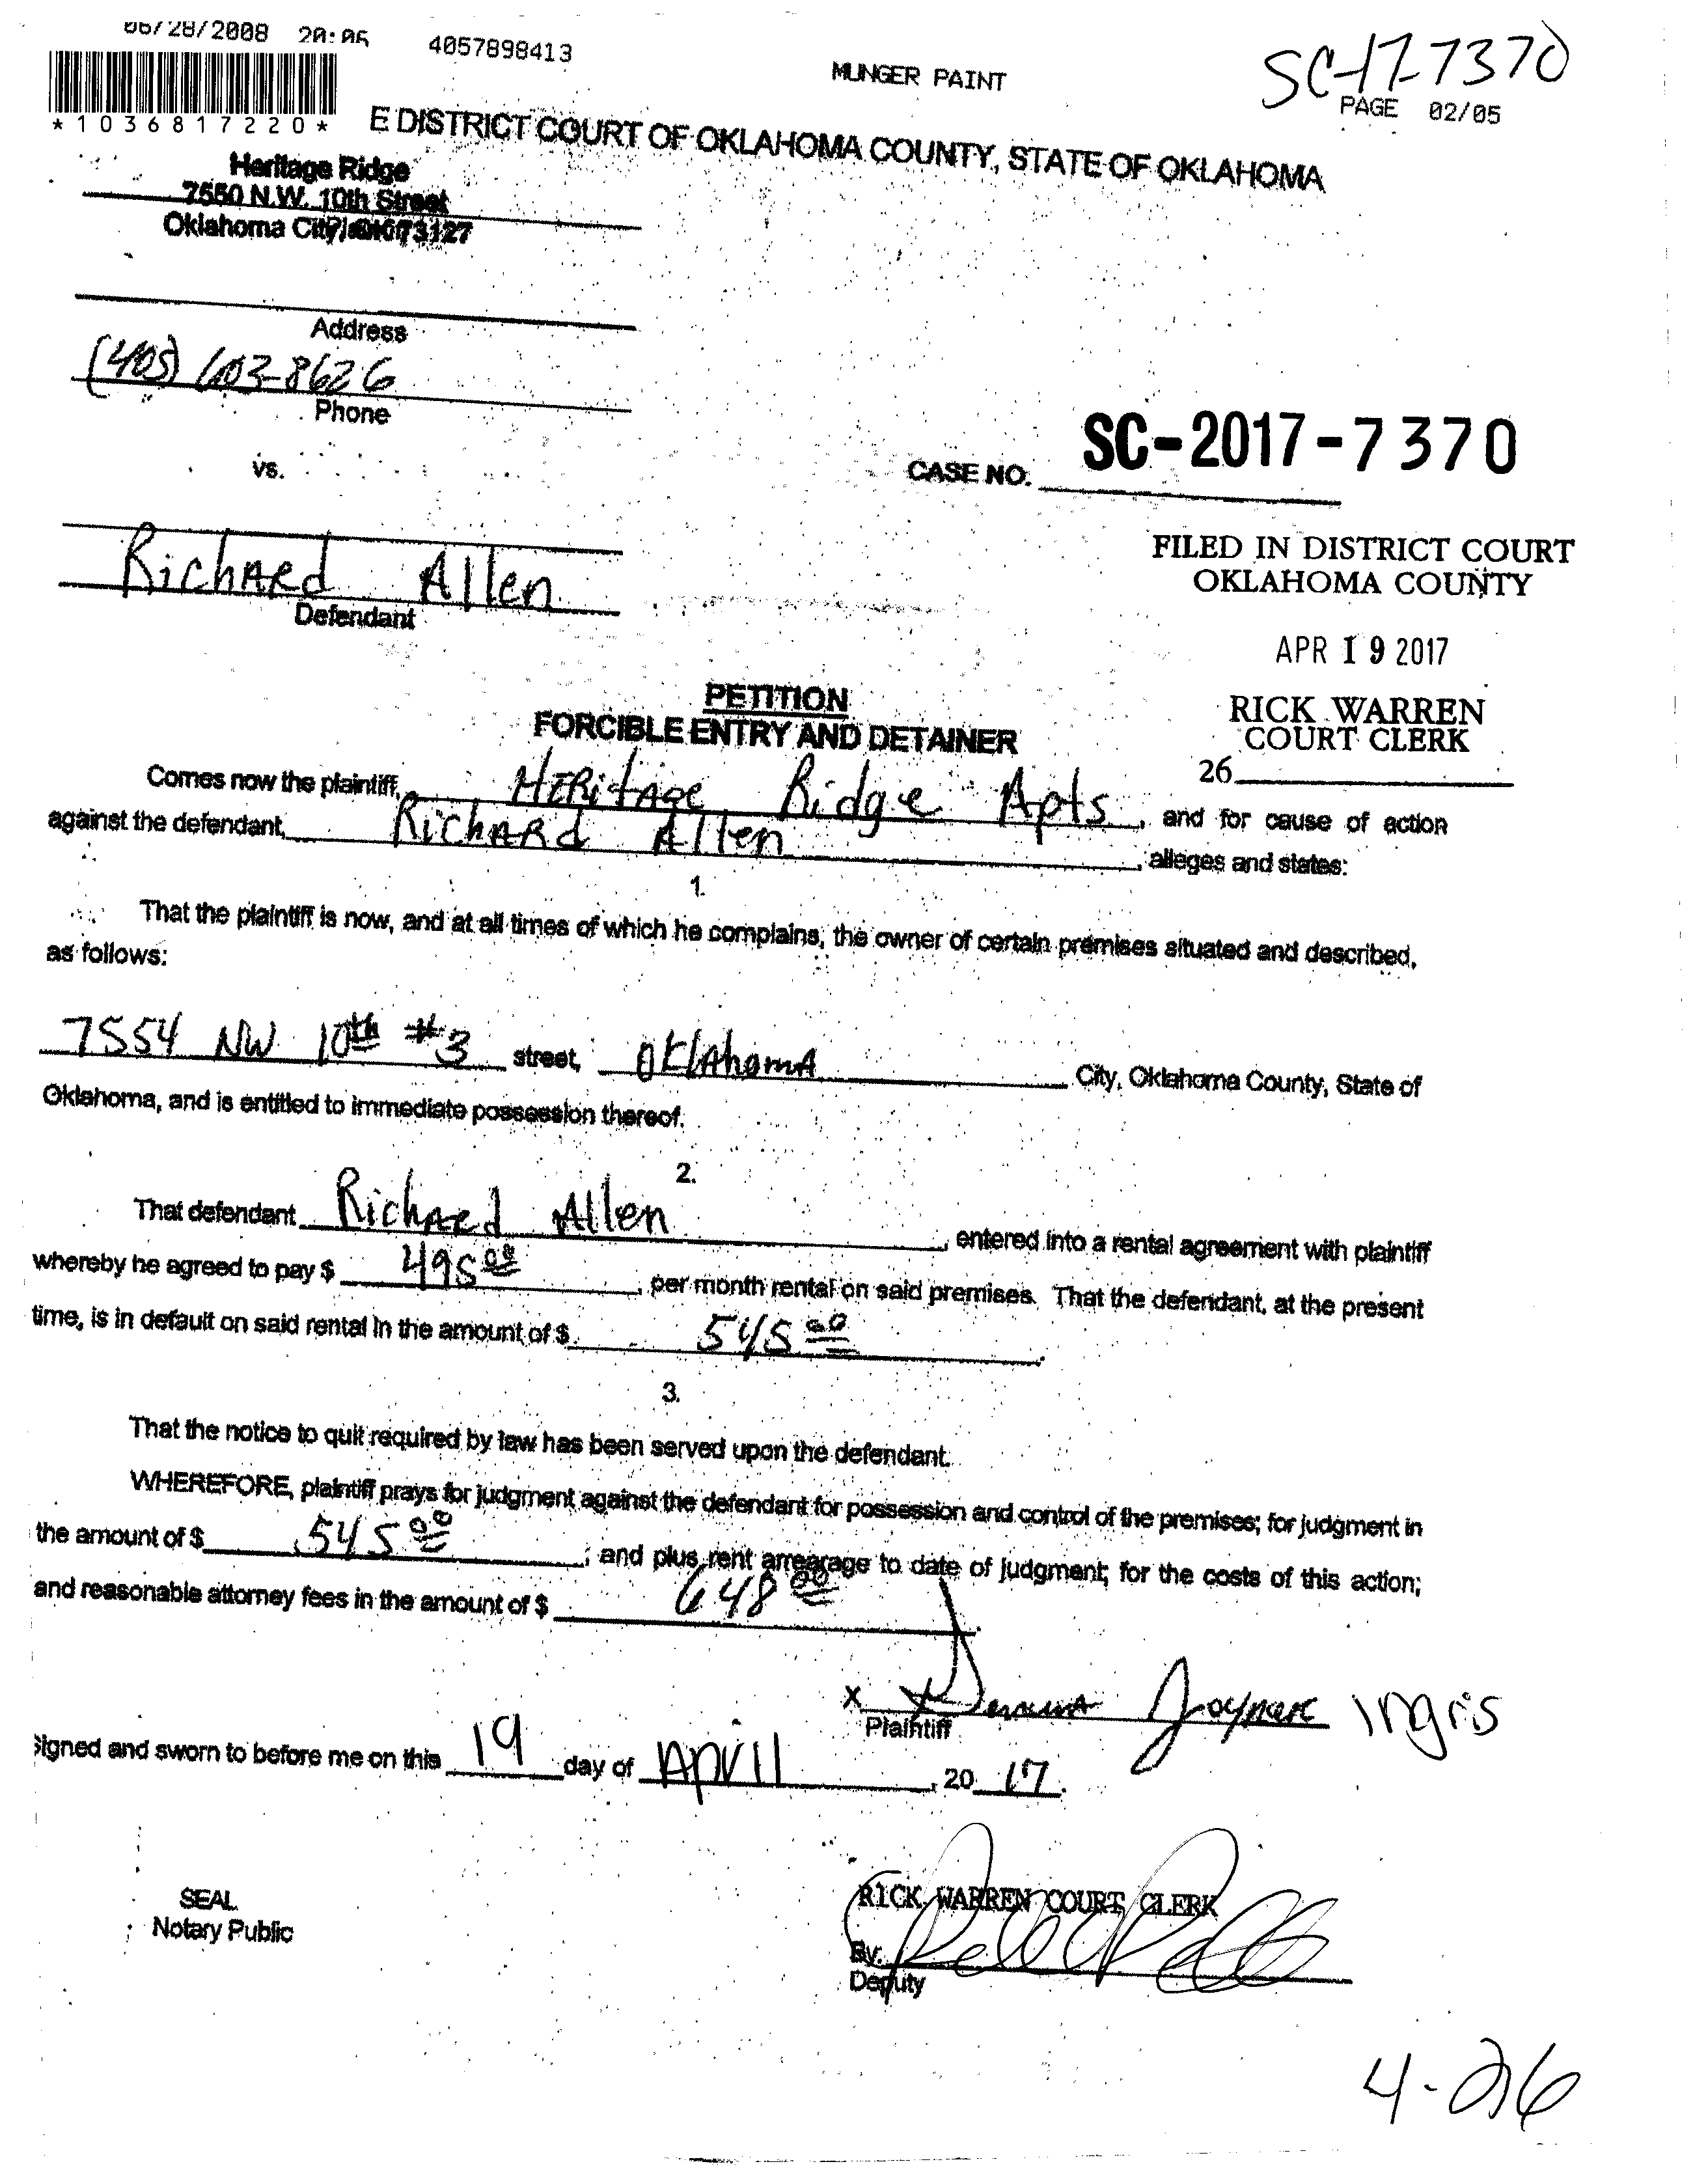 06/28/2008 20:06 4057898413 MUNGER PAINT
SC-17-7370
PAGE 02/05
*1036817220*
E DISTRICT COURT OF OKLAHOMA COUNTY, STATE OF OKLAHOMA
Heritage Ridge
7550 N.W. 10th Street
Oklahoma City, 73127
Address
(405) 603-8626
Phone
vs.
CASE NO. SC-2017-7370
Richard Allen
Defendant
FILED IN DISTRICT COURT
OKLAHOMA COUNTY
APR 19 2017
RICK WARREN
COURT CLERK
26
PETITION
FORCIBLE ENTRY AND DETAINER
Comes now the plaintiff, Heritage Ridge Apts, and for cause of action
against the defendant, Richard Allen, alleges and states:
1.
That the plaintiff is now, and at all times of which he complains, the owner of certain premises situated and described,
as follows:
7554 NW 10th #3 street, Oklahoma City, Oklahoma County, State of
Oklahoma, and is entitled to immediate possession thereof.
2.
That defendant Richard Allen, entered into a rental agreement with plaintiff
whereby he agreed to pay $ 495.00, per month rental on said premises. That the defendant, at the present
time, is in default on said rental in the amount of $ 545.00.
3.
That the notice to quit required by law has been served upon the defendant.
WHEREFORE, plaintiff prays for judgment against the defendant for possession and control of the premises; for judgment in
the amount of $ 545.00; and plus rent arrearage to date of judgment; for the costs of this action;
and reasonable attorney fees in the amount of $ 648.00.
X Ingris
Plaintiff
Signed and sworn to before me on this 19 day of April, 2017.
SEAL
Notary Public
RICK WARREN COURT CLERK
By:
Deputy
4-26